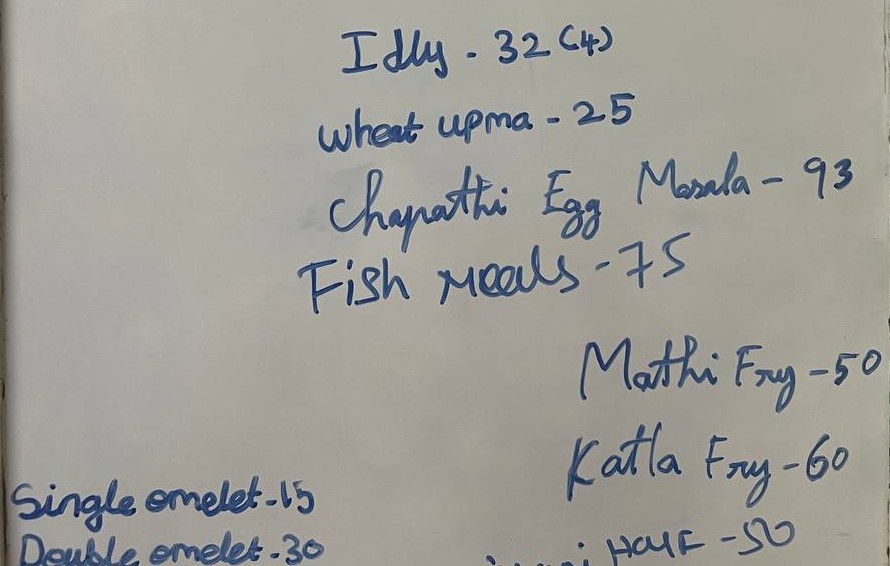 Idly - 32 (4)
wheat upma - 25
Chapathi Egg Masala - 93
Fish meals - 75
Mathi Fry - 50
Katla Fry - 60
Single omelet - 15
Double omelet - 30
HALF - 50